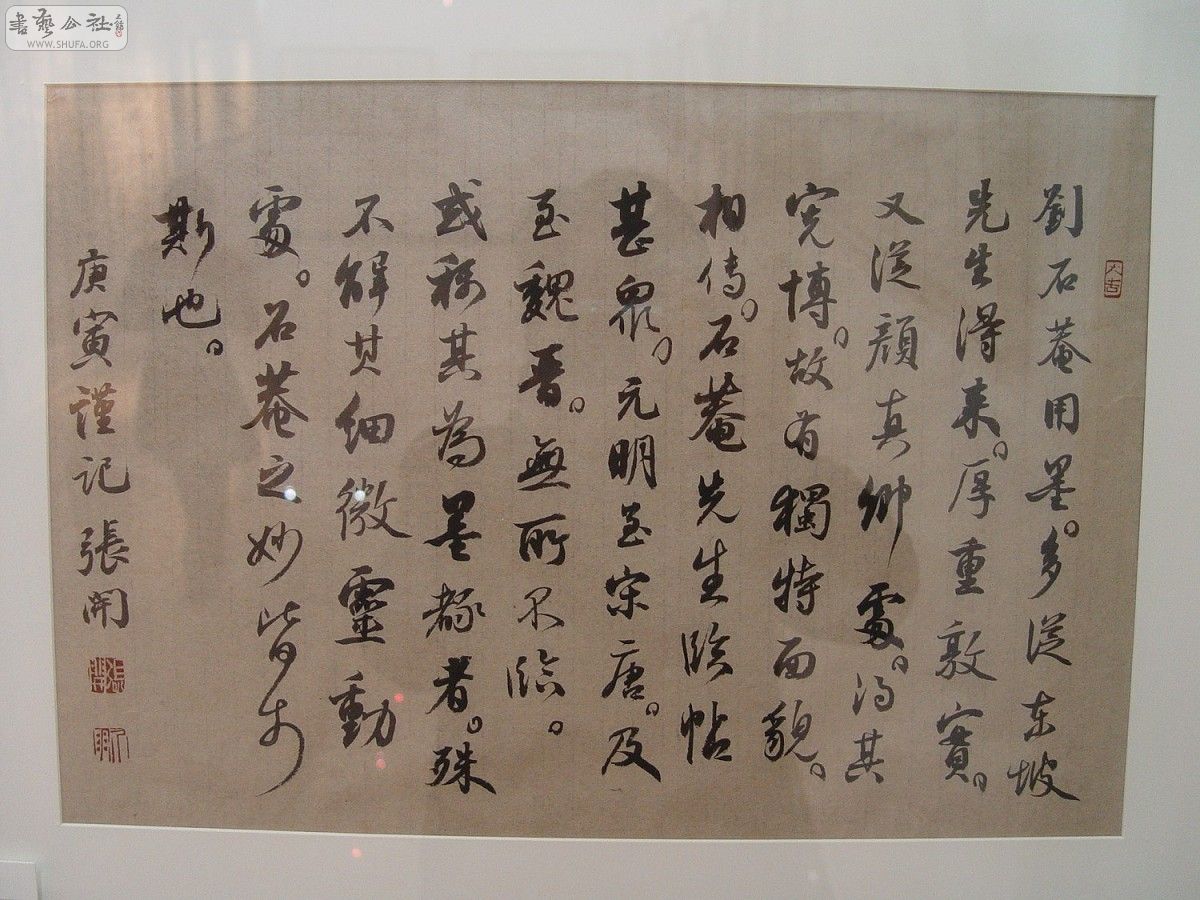 劉石菴用墨。多從东坡
先生得来。厚重敦實。
又從顔真卿處。得其
宽博。故有獨特面貌。
相傳。石菴先生臨帖
甚衆。元明至宋唐。及
至魏晋。無所不臨。
或稱其為墨豬者。殊
不解其细微靈動
處。石菴之妙皆于
斯也。
庚寅謹记張開
書藝公社
WWW.SHUFA.ORG